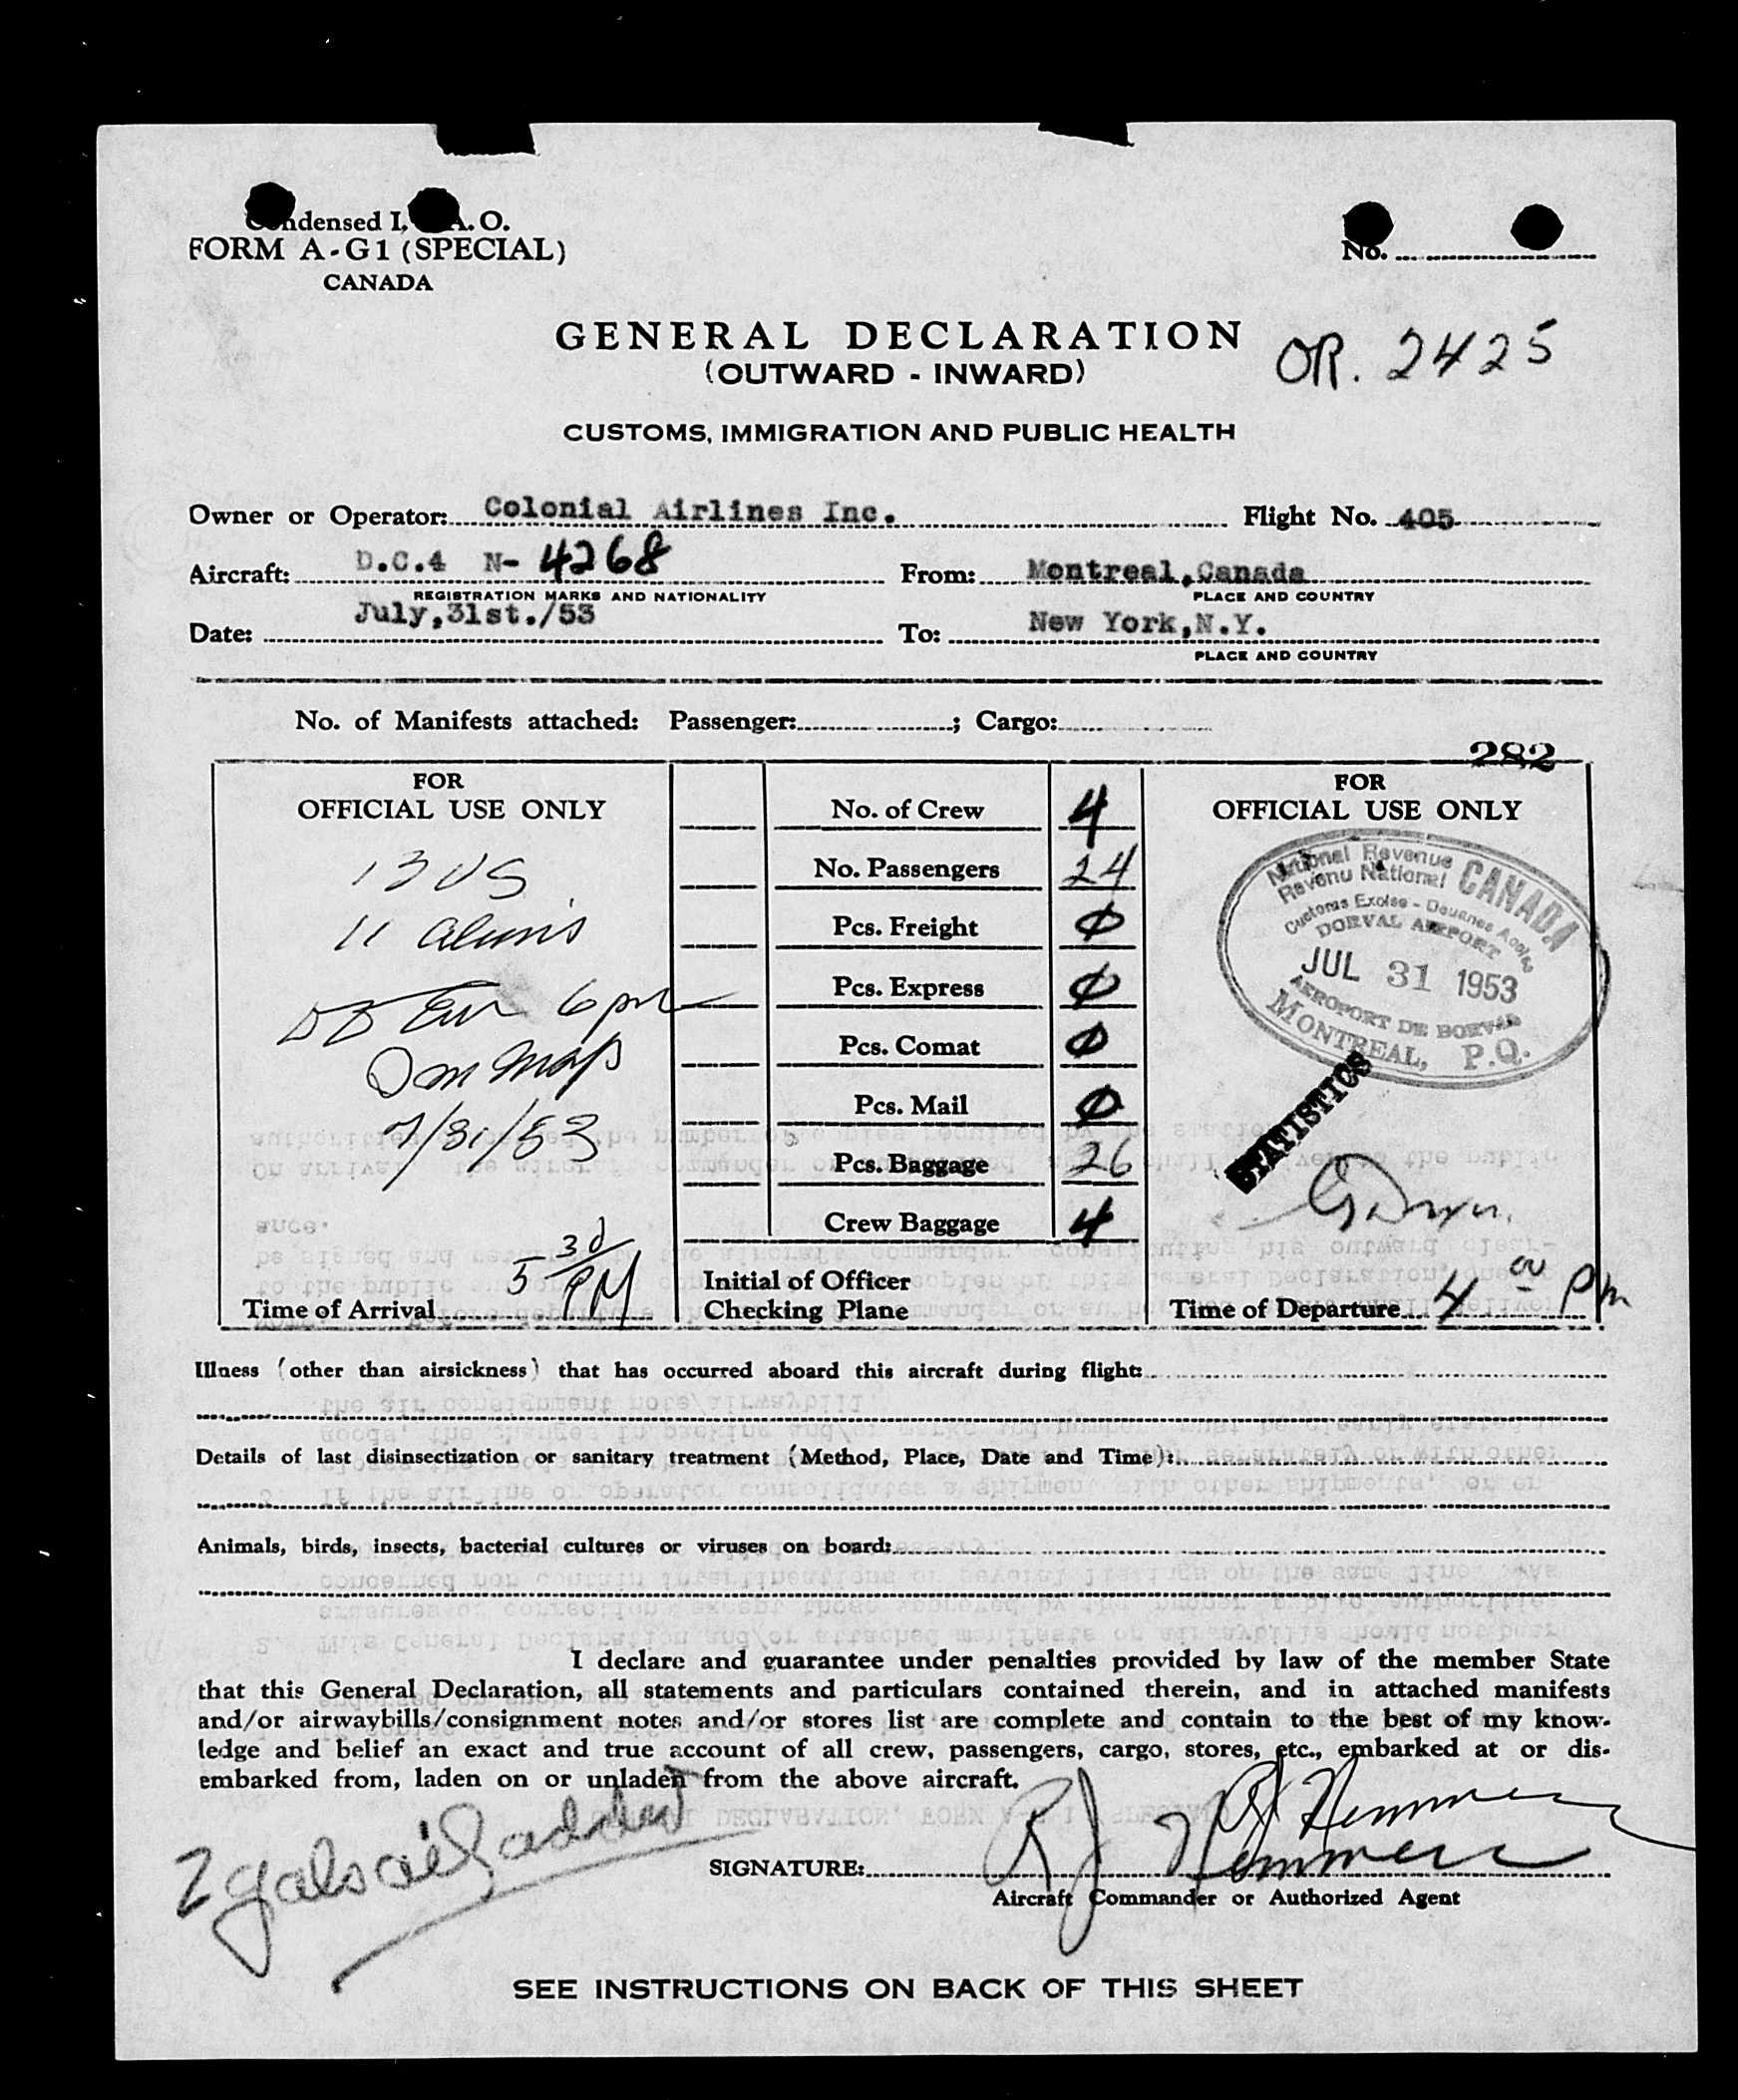 Condensed I. A. O.
FORM A-G1 (SPECIAL)
CANADA
No.
GENERAL DECLARATION
(OUTWARD - INWARD)
OR. 2425
CUSTOMS, IMMIGRATION AND PUBLIC HEALTH
Owner or Operator: Colonial Airlines Inc. Flight No. 405
Aircraft: D.C.4 N- 4268 From: Montreal,Canada
REGISTRATION MARKS AND NATIONALITY PLACE AND COUNTRY
Date: July,31st./53 To: New York,N.Y.
PLACE AND COUNTRY
No. of Manifests attached: Passenger: ; Cargo:
282
FOR
OFFICIAL USE ONLY
13 US
11 aliens
6 pm
7/31/53
Time of Arrival 5 30 PM
No. of Crew 4
No. Passengers 24
Pcs. Freight 0
Pcs. Express 0
Pcs. Comat 0
Pcs. Mail 0
Pcs. Baggage 26
Crew Baggage 4
Initial of Officer
Checking Plane
FOR
OFFICIAL USE ONLY
National Revenue
Revenu National
CANADA
Customs Excise - Douanes Accise
DORVAL AIRPORT
JUL 31 1953
AEROPORT DE DORVAL
MONTREAL, P.Q.
STATISTICS
Time of Departure 4 00 pm
Illness (other than airsickness) that has occurred aboard this aircraft during flight:
Details of last disinsectization or sanitary treatment (Method, Place, Date and Time):
Animals, birds, insects, bacterial cultures or viruses on board:
I declare and guarantee under penalties provided by law of the member State
that this General Declaration, all statements and particulars contained therein, and in attached manifests
and/or airwaybills/consignment notes and/or stores list are complete and contain to the best of my know-
ledge and belief an exact and true account of all crew, passengers, cargo, stores, etc., embarked at or dis-
embarked from, laden on or unladen from the above aircraft.
2 gals oil added
SIGNATURE: R J
Aircraft Commander or Authorized Agent
SEE INSTRUCTIONS ON BACK OF THIS SHEET